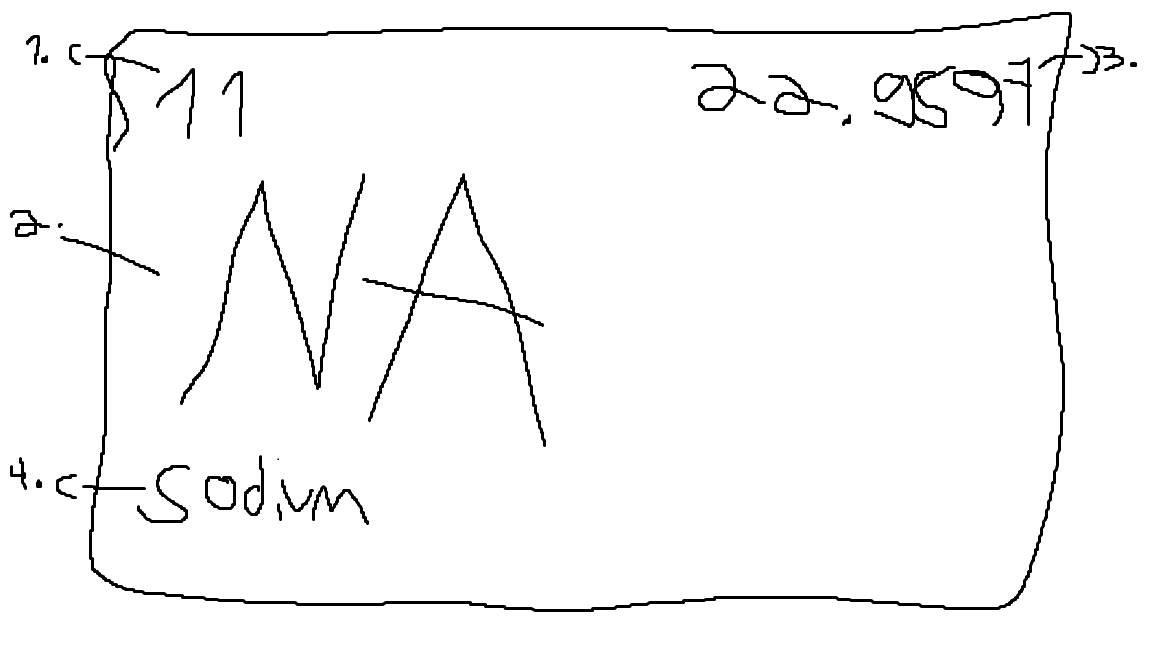 1. 11 22.9597 3.
2. NA
4. Sodium